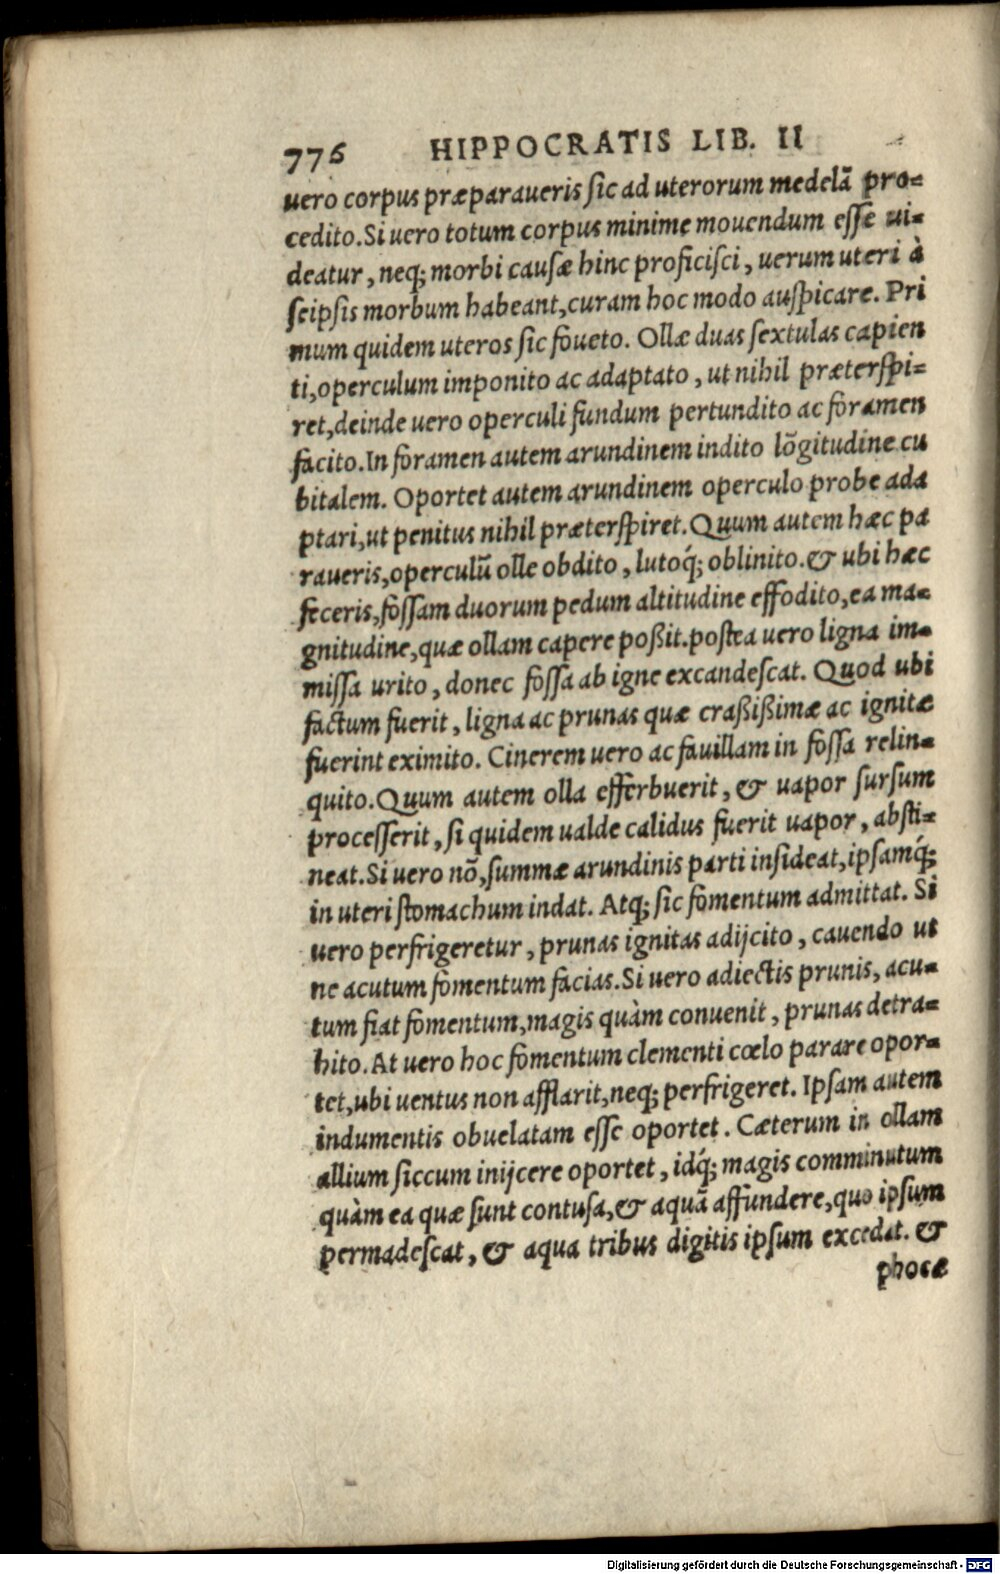 776 HIPPOCRATIS LIB. II
uero corpus præparaueris ſic ad uterorum medelā pro-
cedito. Si uero totum corpus minime mouendum eſſe ui-
deatur, neq; morbi cauſæ hinc proficiſci, uerum uteri à
ſeipſis morbum habeant, curam hoc modo auſpicare. Pri
mum quidem uteros ſic foueto. Ollæ duas ſextulas capien
ti, operculum imponito ac adaptato, ut nihil præterſpi-
ret, deinde uero operculi fundum pertundito ac foramen
facito. In foramen autem arundinem indito lōgitudine cu
bitalem. Oportet autem arundinem operculo probe ada
ptari, ut penitus nihil præterſpiret. Quum autem hæc pa
raueris, operculū olle obdito, lutoq́; oblinito. & ubi hæc
feceris, foſſam duorum pedum altitudine effodito, ea ma-
gnitudine, quæ ollam capere poßit. poſtea uero ligna im-
miſſa urito, donec foſſa ab igne excandeſcat. Quod ubi
factum fuerit, ligna ac prunas quæ craßißimæ ac ignitæ
fuerint eximito. Cinerem uero ac fauillam in foſſa relin-
quito. Quum autem olla efferbuerit, & uapor ſurſum
proceſſerit, ſi quidem ualde calidus fuerit uapor, abſti-
neat. Si uero nō, ſummæ arundinis parti inſideat, ipſamq́;
in uteri ſtomachum indat. Atq; ſic fomentum admittat. Si
uero perfrigeretur, prunas ignitas adijcito, cauendo ut
ne acutum fomentum facias. Si uero adiectis prunis, acu-
tum fiat fomentum, magis quàm conuenit, prunas detra-
hito. At uero hoc fomentum clementi cœlo parare opor-
tet, ubi uentus non afflarit, neq; perfrigeret. Ipſam autem
indumentis obuelatam eſſe oportet. Cæterum in ollam
allium ſiccum inijcere oportet, idq́; magis comminutum
quàm ea quæ ſunt contuſa, & aquā affundere, quo ipſum
permadeſcat, & aqua tribus digitis ipſum excedat. &
phocæ
Digitalisierung gefördert durch die Deutsche Forschungsgemeinschaft - DFG